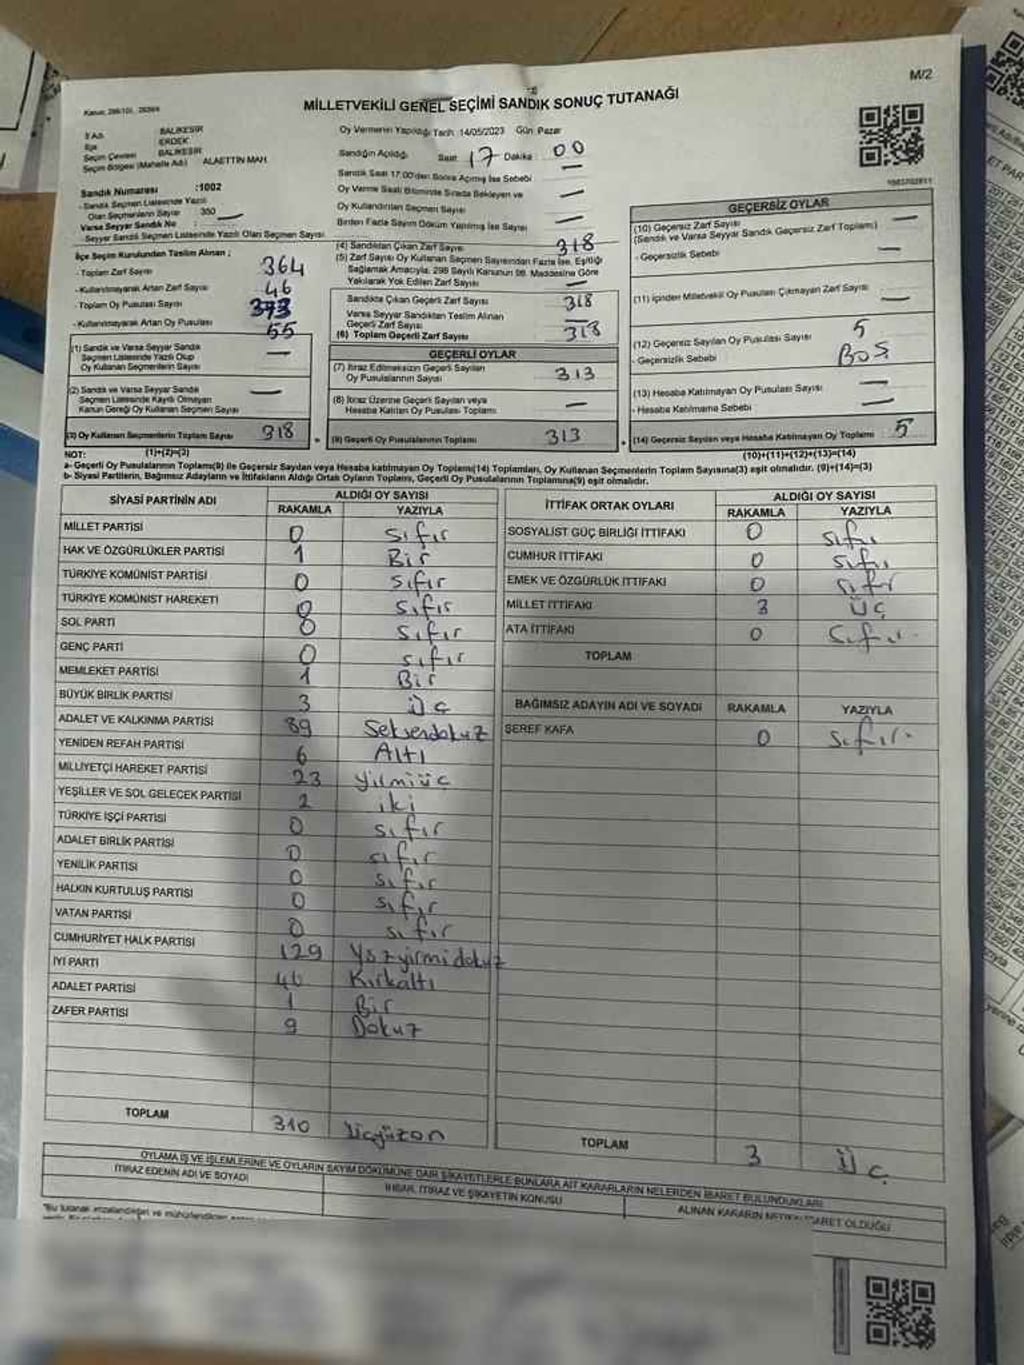 M/2
Kanun: 298/101, 2839/4
MİLLETVEKİLİ GENEL SEÇİMİ SANDIK SONUÇ TUTANAĞI
İl Adı BALIKESİR
İlçe ERDEK
Seçim Çevresi BALIKESİR
Seçim Bölgesi (Mahalle Adı) ALAETTİN MAH.
Sandık Numarası :1002
- Sandık Seçmen Listesinde Yazılı
Olan Seçmenlerin Sayısı 350
Varsa Seyyar Sandık No
- Seyyar Sandık Seçmen Listesinde Yazılı Olan Seçmen Sayısı
Oy Vermenin Yapıldığı Tarih :14/05/2023 Gün: Pazar
Sandığın Açıldığı Saat 17 Dakika : 00
Sandık Saat 17:00'den Sonra Açılmış İse Sebebi —
Oy Verme Saati Bitiminde Sırada Bekleyen ve
Oy Kullandırılan Seçmen Sayısı —
Birden Fazla Sayım Döküm Yapılmış İse Sayısı —
İlçe Seçim Kurulundan Teslim Alınan ;
- Toplam Zarf Sayısı 364
- Kullanılmayarak Artan Zarf Sayısı 46
- Toplam Oy Pusulası Sayısı 373
- Kullanılmayarak Artan Oy Pusulası 55
(1) Sandık ve Varsa Seyyar Sandık
Seçmen Listesinde Yazılı Olup
Oy Kullanan Seçmenlerin Sayısı —
(2) Sandık ve Varsa Seyyar Sandık
Seçmen Listesinde Kayıtlı Olmayan
Kanun Gereği Oy Kullanan Seçmen Sayısı —
(3) Oy Kullanan Seçmenlerin Toplam Sayısı 318
(1)+(2)=(3)
(4) Sandıktan Çıkan Zarf Sayısı 318
(5) Zarf Sayısı Oy Kullanan Seçmen Sayısından Fazla İse, Eşitliği
Sağlamak Amacıyla, 298 Sayılı Kanunun 98. Maddesine Göre
Yakılarak Yok Edilen Zarf Sayısı —
Sandıkta Çıkan Geçerli Zarf Sayısı 318
Varsa Seyyar Sandıktan Teslim Alınan
Geçerli Zarf Sayısı —
(6) Toplam Geçerli Zarf Sayısı 318
GEÇERLİ OYLAR
(7) İtiraz Edilmeksizin Geçerli Sayılan
Oy Pusulalarının Sayısı 313
(8) İtiraz Üzerine Geçerli Sayılan veya
Hesaba Katılan Oy Pusulası Toplamı —
(9) Geçerli Oy Pusulalarının Toplamı 313
GEÇERSİZ OYLAR
(10) Geçersiz Zarf Sayısı —
(Sandık ve Varsa Seyyar Sandık Geçersiz Zarf Toplamı)
- Geçersizlik Sebebi —
(11) İçinden Milletvekili Oy Pusulası Çıkmayan Zarf Sayısı —
(12) Geçersiz Sayılan Oy Pusulası Sayısı 5
- Geçersizlik Sebebi BOŞ
(13) Hesaba Katılmayan Oy Pusulası Sayısı —
- Hesaba Katılmama Sebebi —
(14) Geçersiz Sayılan veya Hesaba Katılmayan Oy Toplamı 5
(10)+(11)+(12)+(13)=(14)
NOT:
a- Geçerli Oy Pusulalarının Toplamı(9) ile Geçersiz Sayılan veya Hesaba katılmayan Oy Toplamı(14) Toplamları, Oy Kullanan Seçmenlerin Toplam Sayısına(3) eşit olmalıdır. (9)+(14)=(3)
b- Siyasi Partilerin, Bağımsız Adayların ve İttifakların Aldığı Ortak Oyların Toplamı, Geçerli Oy Pusulalarının Toplamına(9) eşit olmalıdır.
SİYASİ PARTİNİN ADI ALDIĞI OY SAYISI
RAKAMLA YAZIYLA
MİLLET PARTİSİ 0 sıfır
HAK VE ÖZGÜRLÜKLER PARTİSİ 1 Bir
TÜRKİYE KOMÜNİST PARTİSİ 0 sıfır
TÜRKİYE KOMÜNİST HAREKETİ 0 sıfır
SOL PARTİ 0 sıfır
GENÇ PARTİ 0 sıfır
MEMLEKET PARTİSİ 1 Bir
BÜYÜK BİRLİK PARTİSİ 3 Üç
ADALET VE KALKINMA PARTİSİ 89 Seksendokuz
YENİDEN REFAH PARTİSİ 6 Altı
MİLLİYETÇİ HAREKET PARTİSİ 23 Yirmiüç
YEŞİLLER VE SOL GELECEK PARTİSİ 2 iki
TÜRKİYE İŞÇİ PARTİSİ 0 sıfır
ADALET BİRLİK PARTİSİ 0 sıfır
YENİLİK PARTİSİ 0 sıfır
HALKIN KURTULUŞ PARTİSİ 0 sıfır
VATAN PARTİSİ 0 sıfır
CUMHURİYET HALK PARTİSİ 129 Yüzyirmidokuz
İYİ PARTİ 46 Kırkaltı
ADALET PARTİSİ 1 Bir
ZAFER PARTİSİ 9 Dokuz
TOPLAM 310 Üçyüzon
İTTİFAK ORTAK OYLARI ALDIĞI OY SAYISI
RAKAMLA YAZIYLA
SOSYALİST GÜÇ BİRLİĞİ İTTİFAKI 0 sıfır
CUMHUR İTTİFAKI 0 sıfır
EMEK VE ÖZGÜRLÜK İTTİFAKI 0 sıfır
MİLLET İTTİFAKI 3 ÜÇ
ATA İTTİFAKI 0 sıfır
TOPLAM
BAĞIMSIZ ADAYIN ADI VE SOYADI RAKAMLA YAZIYLA
ŞEREF KAFA 0 sıfır
TOPLAM 3 Üç
OYLAMA İŞ VE İŞLEMLERİNE VE OYLARIN SAYIM DÖKÜMÜNE DAİR ŞİKAYETLERLE BUNLARA AİT KARARLARIN NELERDEN İBARET BULUNDUKLARI
İTİRAZ EDENİN ADI VE SOYADI İHBAR, İTİRAZ VE ŞİKAYETİN KONUSU ALINAN KARARIN NEDEN İBARET OLDUĞU